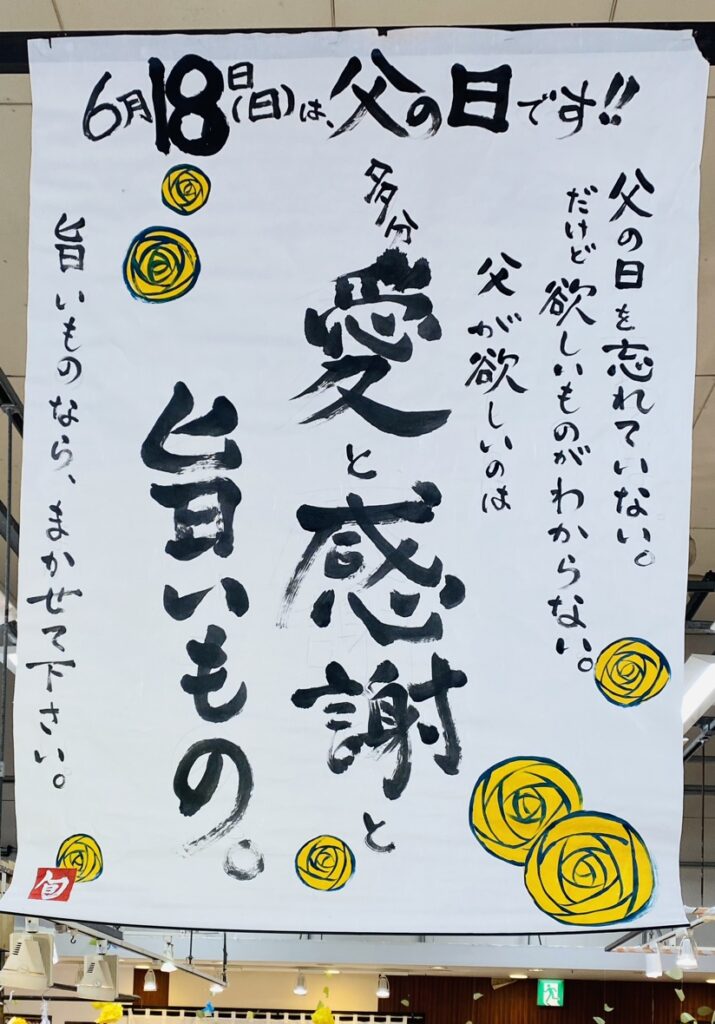 6月18日(日)は、父の日です!!
父の日を忘れていない。
だけど欲しいものがわからない。
父が欲しいのは
多分
愛と感謝と
旨いもの。
旨いものなら、まかせて下さい。
旬